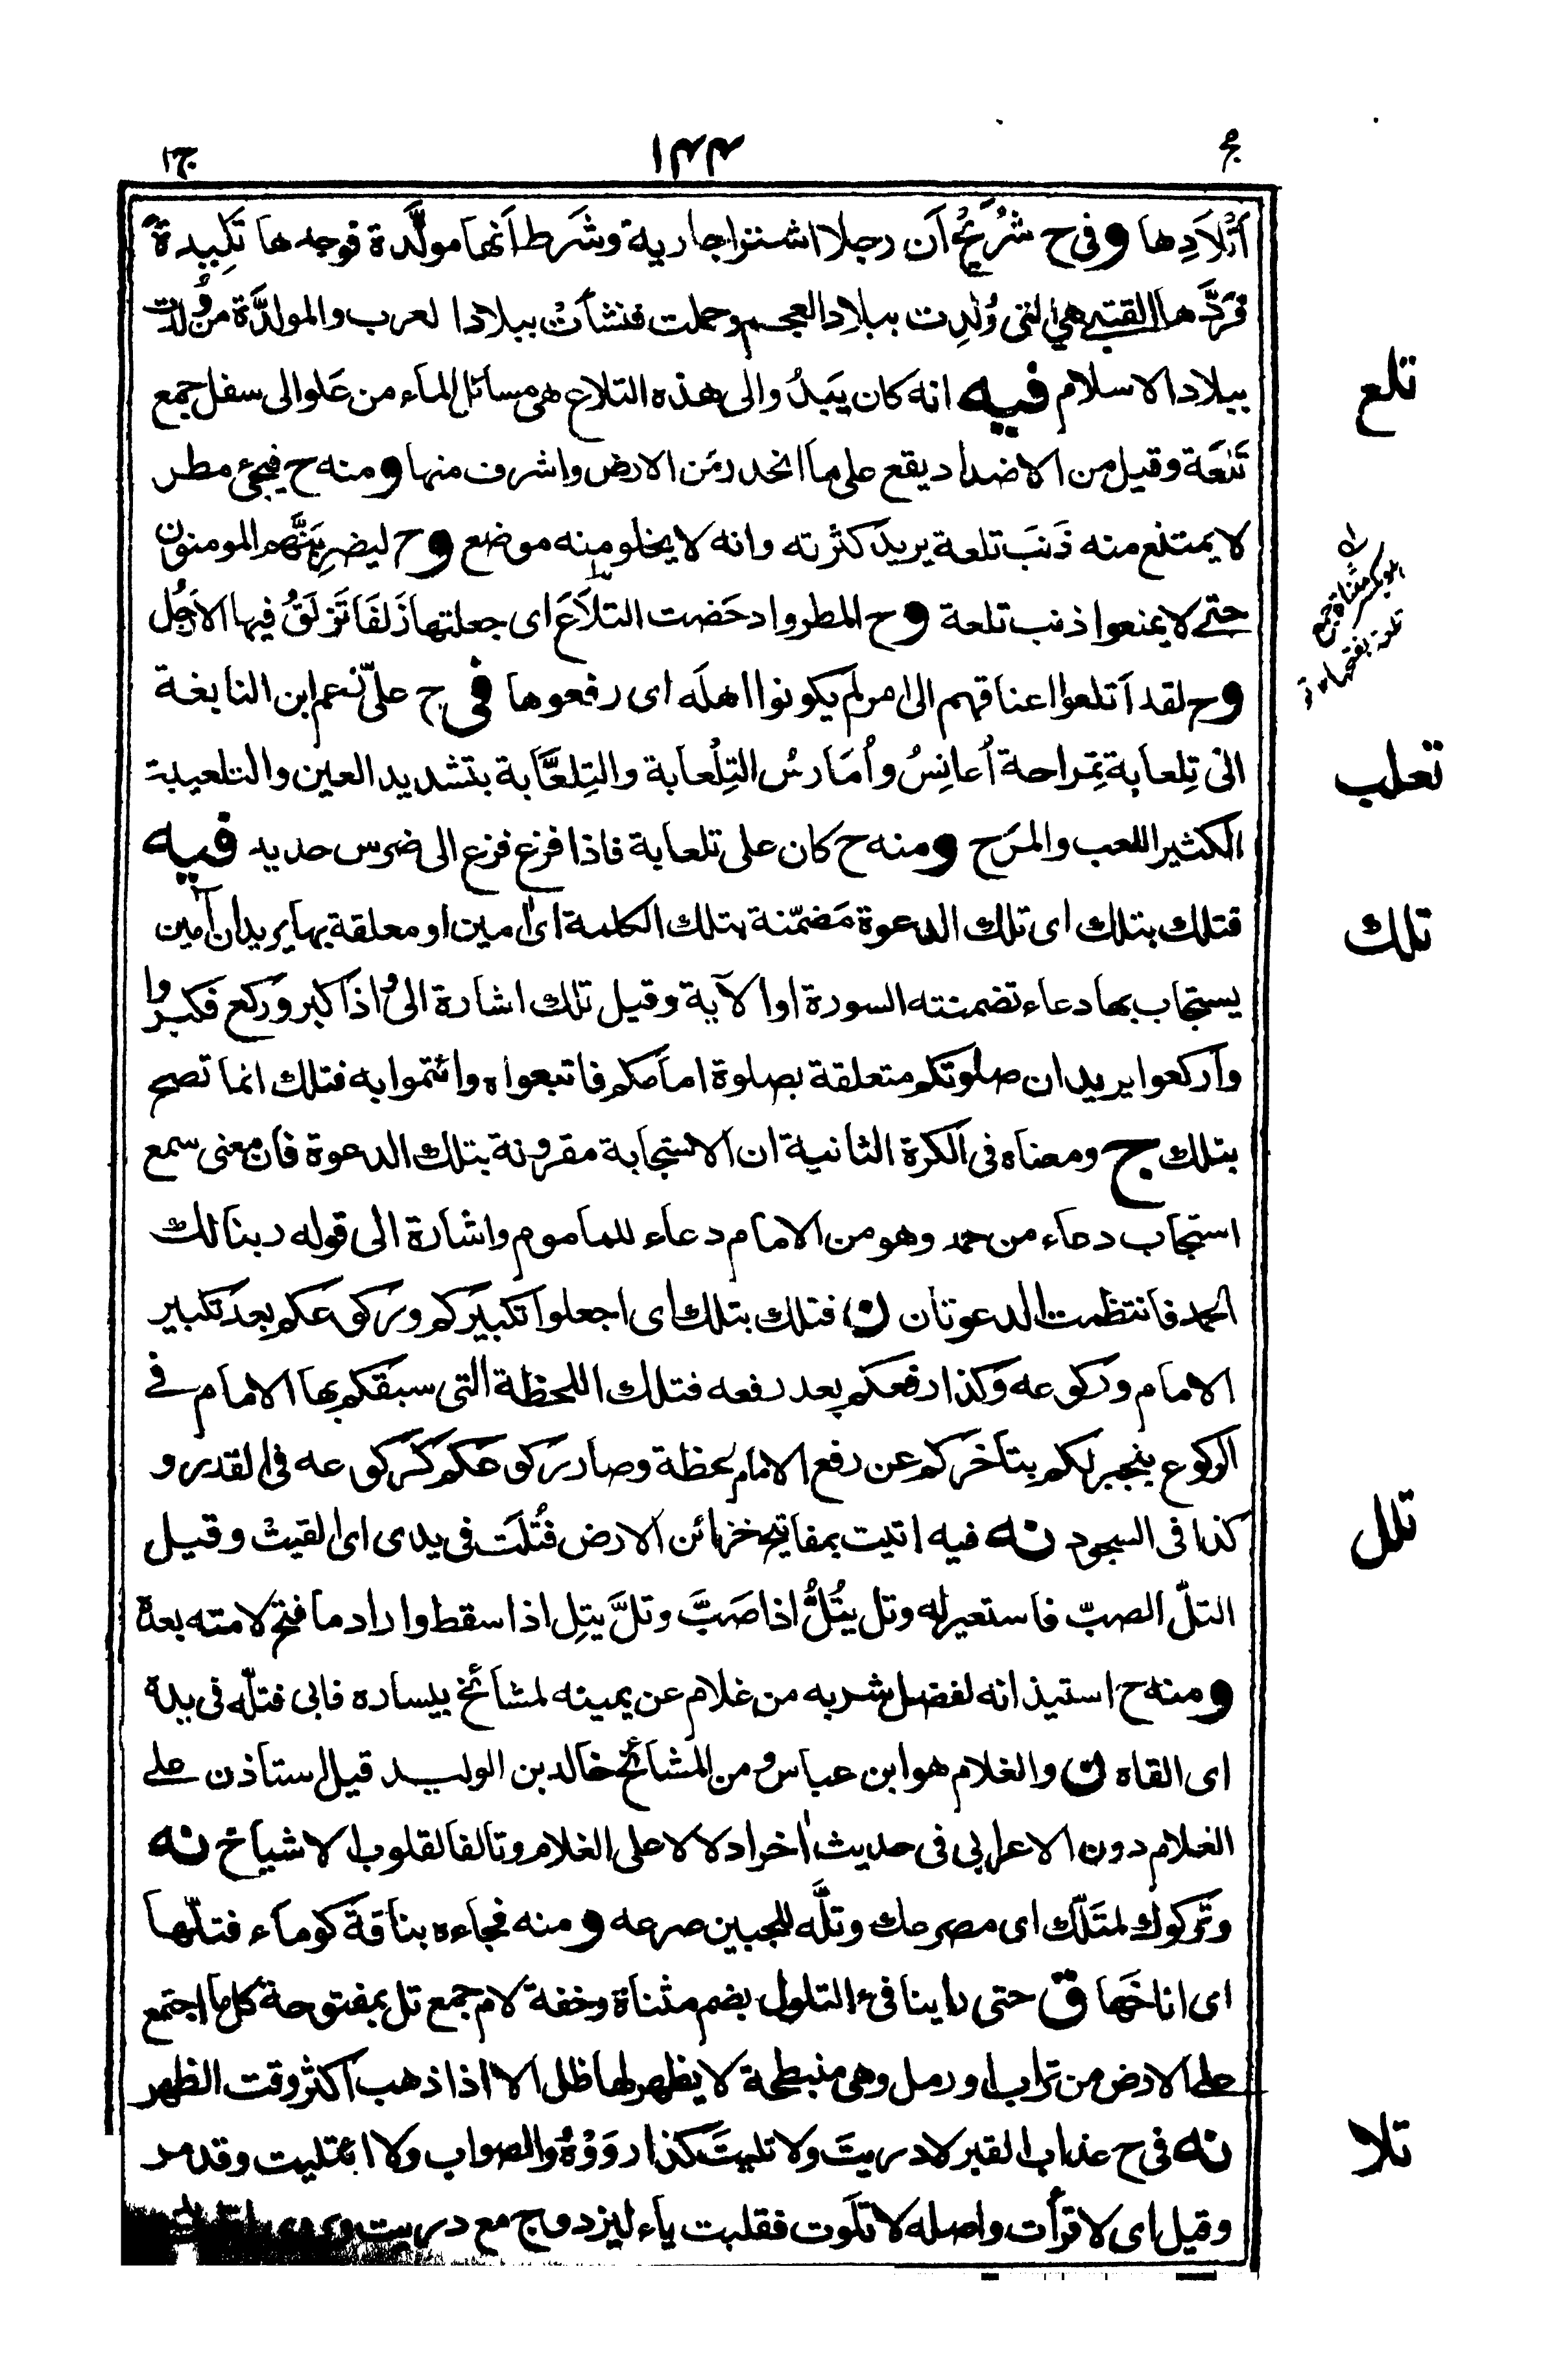 مج ١٤٤ ج١
أَتْلاَدِها وفى ح شُرَيْحٍ أن رجلا اشترا جارية وشَرط أنها مولَّدة فوجدها تَلِيدةً
فرَدَّها القتبى هي التى وُلِدت ببلاد العجم وحملت فنشأتْ ببلاد العرب والمولدَّة من وُلدت
ببلاد الاسلام فيه انه كان يَبدُو الى هذه التلاع هى مسائل الماء من عَلو الى سفل جمع
تَلعَة وقيل من الاضداد يقع على ما انحدر من الارض واشرف منها ومنه ح فيجئ مطر
لا يمتنع منه ذَنَبَ تلعة يريد كثرته وانه لا يخلو منه موضع وح ليضرِبَنَّهم المومنون
حتى لا يمنعوا ذنب تلعة وح المطر وادحَضت التلاَعَ اى جعلتها زَلَفا تَزلَقُ فيها الأرجُل
وح لقد أتلعوا اعناقهم الى امر لم يكونوا اهلَه اى رفعوها فى ح علىّ زعم ابن النابغة
انى تِلعابة تِمراحة أُعانِسُ وأُمَارسُ التِلْعابة والتِلعَّابة بتشديد العين والتلعيبة
الكثير اللعب والمَرَح ومنه ح كان على تلعابة فاذا فزع فزع الى ضرس حديد فيه
فتلك بتلك اى تلك الدعوة مَضمّنة بتلك الكلمة اى امين او معلقة بها يريد ان آمين
يستجاب بها دعاء تضمنته السورة او الآية وقيل تلك اشارة الى واذا كبر وركع فكبروا
واركعوا يريد ان صلوتكم متعلقة بصلوة امامكم فاتبعواه وائتموا به فتلك انما تصح
بتلك ج ومعناه فى الكرة الثانية ان الاستجابة مقرونة بتلك الدعوة فان معنى سمع
استجاب دعاء من حمد وهو من الامام دعاء للماموم واشارة الى قوله ربنا لك
الحمد فانتظمت الدعوتان ن فتلك بتلك اى اجعلوا تكبيركم وركوعكم بعد تكبير
الامام وركوعه وكذا رفعكم بعد رفعه فتلك اللحظة التى سبقكم بها الامام فى
الركوع ينجبر لكم بتاخركم عن رفع الامام لحظة وصار ركوعكم كركوعه فى القدر و
كذا فى السجود نه فيه اتيت بمفاتيح خزائن الارض فتُلّت فى يدى اى القيت وقيل
التلّ الصبّ فاستعير له وتل يتُلُّ اذا صَبَّ وتلَّ يتِل اذا سقط واراد ما فتح لامته بعدة
ومنه ح استيذانه لفضل شربه من غلام عن يمينه لمشائخ بيساره فابى فتلّه فى يده
اى القاه ن والغلام هو ابن عباس ومن المشائخ خالد بن الوليد قيل استاذن على
الغلام دون الاعرابى فى حديث اخر ادلالا على الغلام وتالفا لقلوب الاشياخ نه
وتركوك لمتَلّك اى مصرعك وتلَّه للجبين صرعه ومنه فجاءه بناقة كوماء فتلّها
اى اناخَها ق حتى راينا فىء التلول بضم مثناة وخفة لام جمع تل بمفتوحة كل ما اجتمع
على الارض من تراب او رمل وهى منبطحة لا يظهر لها ظل الا اذا ذهب اكثر وقت الظهر
نه فى ح عذاب القبر لا دريتَ ولا تليتَ كذا روَوْهُ والصواب ولا ائتليت وقد مر
وقيل اى لا قرأت واصله لا تلَوت فقلبت ياء ليزدوج مع دريت
تلع
جمع
تلعة
تعلب
تلك
تلل
تلا